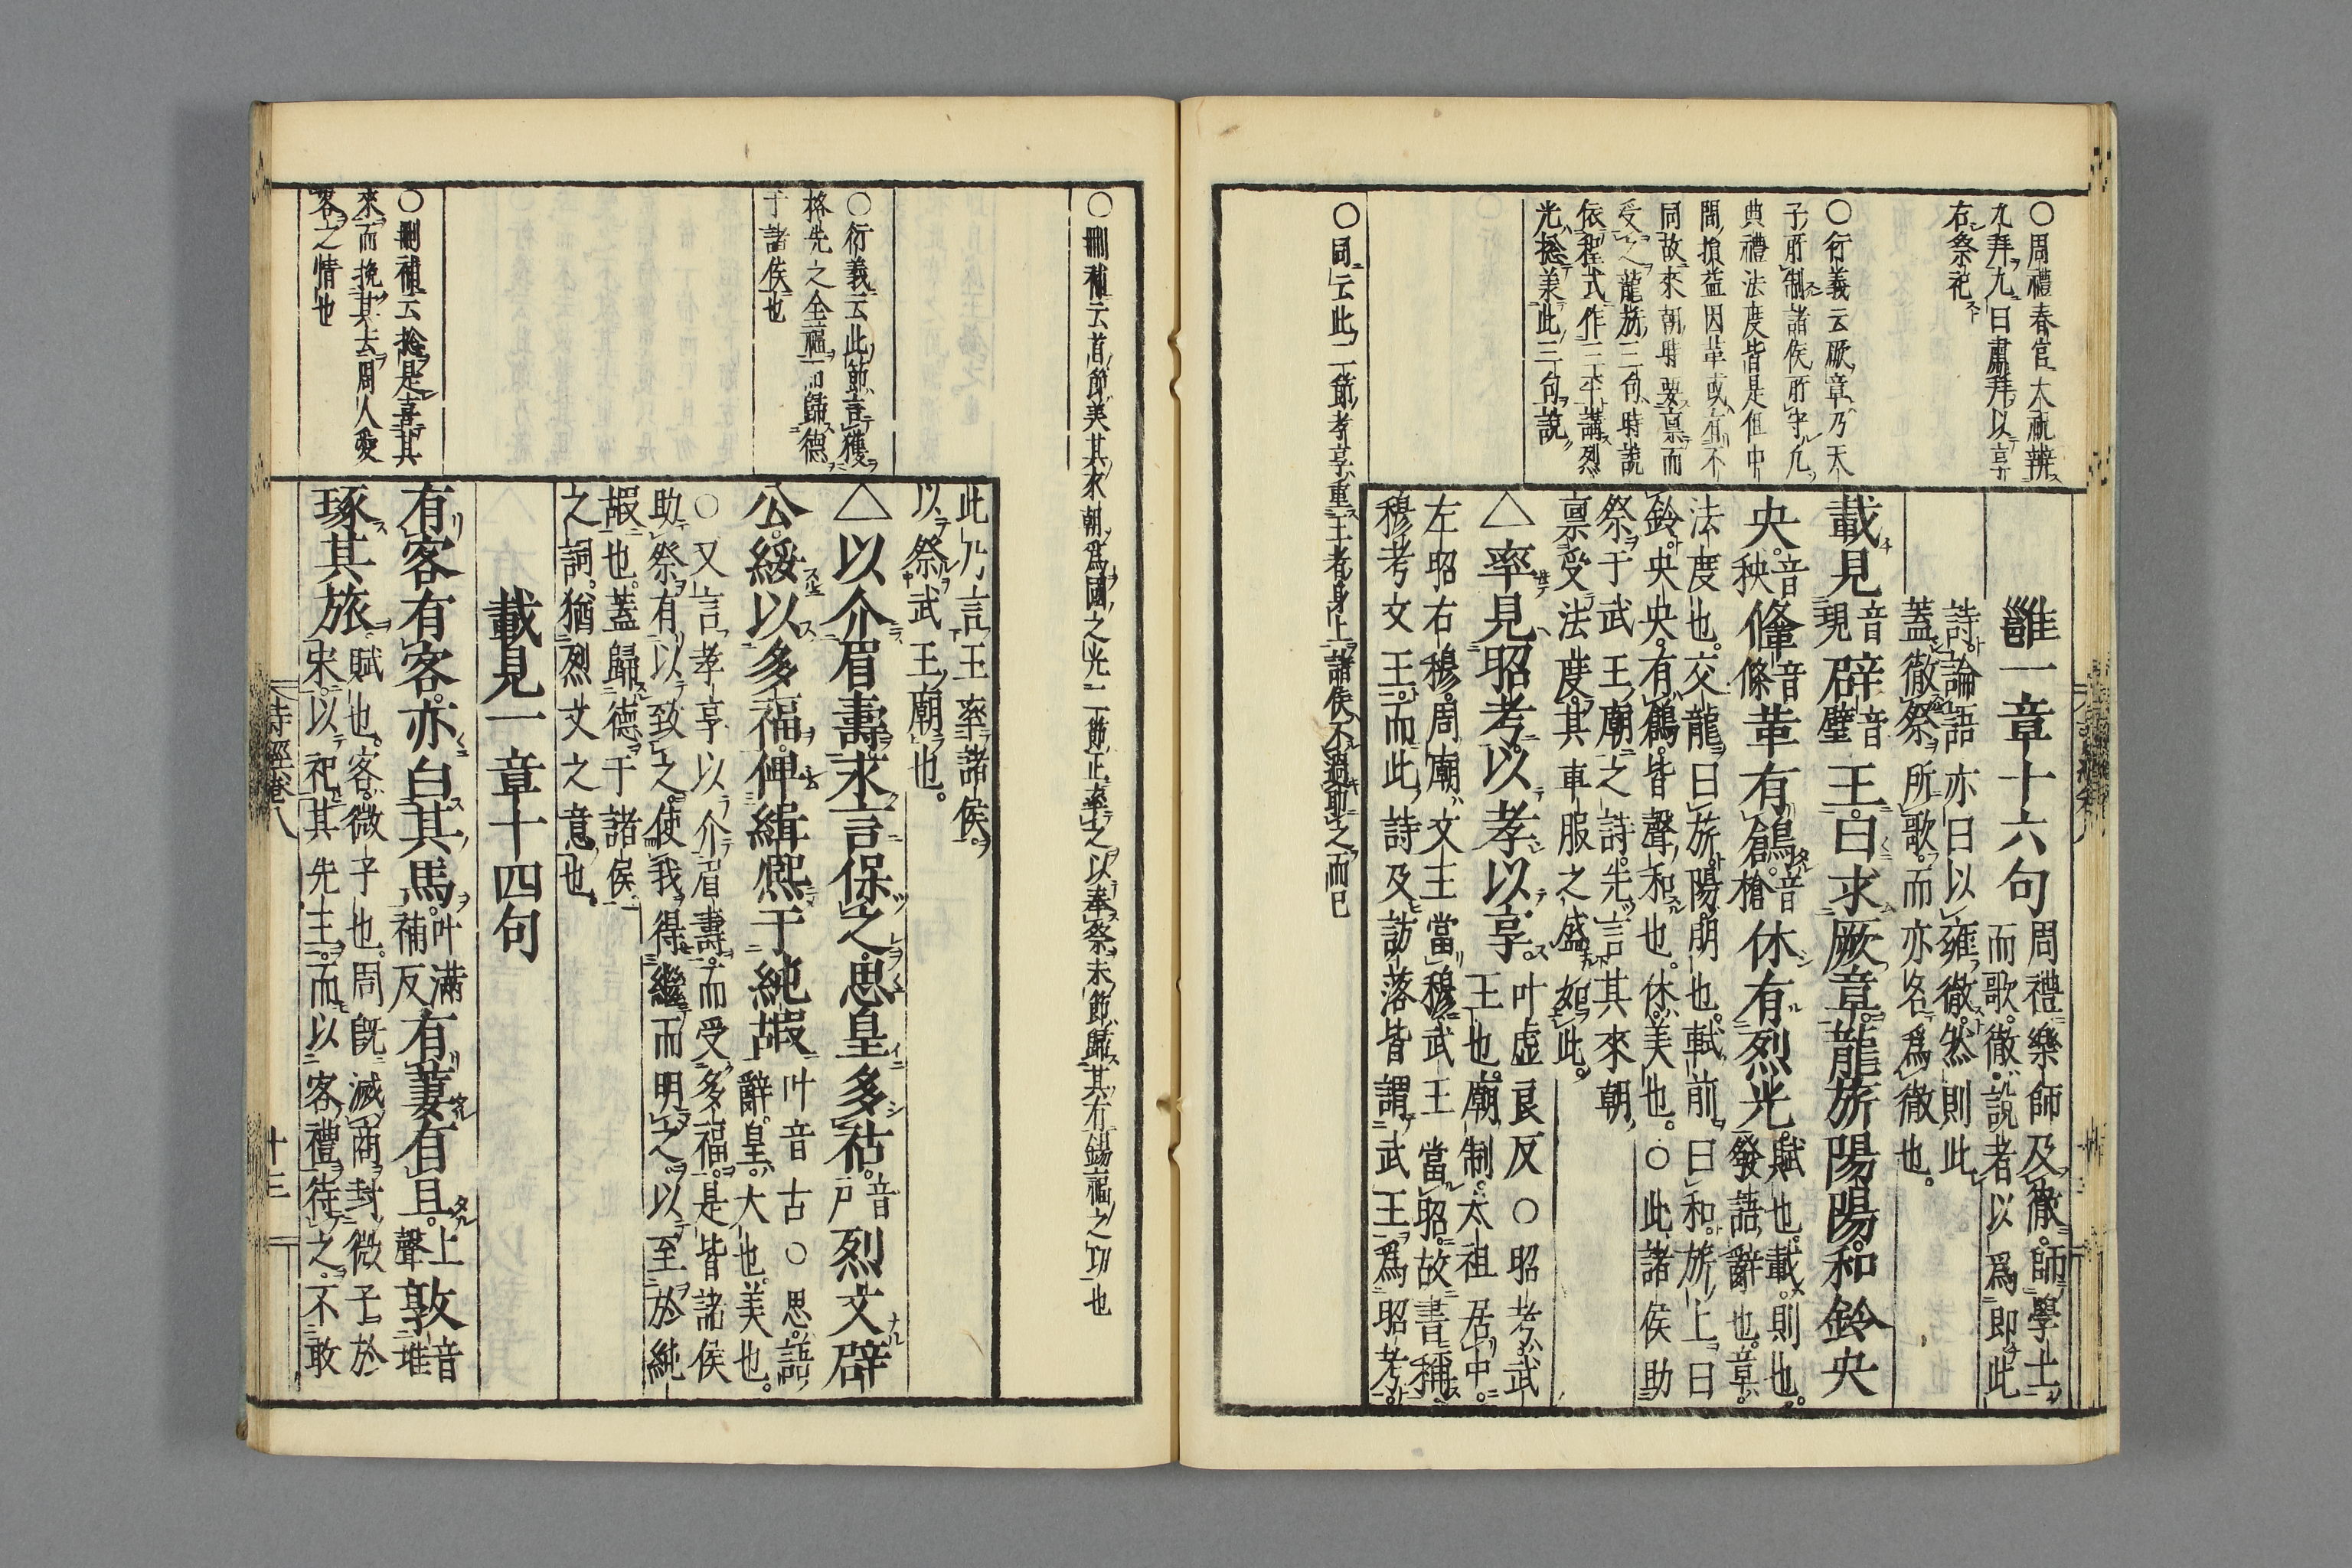 ○周禮春官大祝辨
九拜九曰肅拜以享
右祭祀
○衍義云厥章乃天
子所制諸侯所守凡
典禮法度皆是但中
間損益因革或有不
同故來朝時要禀而
受之龍旂三句時說
依程式作三平講烈
光捴美此三句說
○同云此二節孝享重王者身上諸侯不過助之而已
雝一章十六句周禮樂師及徹師學士
而歌徹說者以爲即此
詩論語亦曰以雍徹然則此
蓋徹祭所歌而亦名爲徹也
載見音現辟音璧王曰求厥章龍旂陽陽和鈴央
央音秧鞗音條革有鶬音槍休有烈光賦也載則也
發語辭也章
法度也交龍曰旂陽明也軾前曰和旂上曰
鈴央央有鶬皆聲和也休美也○此諸侯助
祭于武王廟之詩先言其來朝
禀受法度其車服之盛如此
△率見昭考以孝以享叶虛良反○昭考武
王也廟制太祖居中
左昭右穆周廟文王當穆武王當昭故書稱
穆考文王而此詩及訪落皆謂武王爲昭考
○刪補云首節美其來朝爲國之光二節正率之以奉祭末節歸其有錫福之功也
○衍義云此節言獲
格先之全福而歸德
于諸侯也
○刪補云捴是喜其
來而挽其去周人愛
客之情也
此乃言王率諸侯
以祭武王廟也
△以介眉壽永言保之思皇多祜音戶烈文辟
公綏以多福俾緝熙于純嘏叶音古○思語
辭皇大也美也
○又言孝享以介眉壽而受多福是皆諸侯
助祭有以致之使我得繼而明之以至於純
嘏也蓋歸德于諸侯
之詞猶烈文之意也
載見一章十四句
有客有客亦白其馬叶滿補反有萋有且上聲敦音堆
琢其旅賦也客微子也周既滅商封微子於
宋以祀其先王而以客禮待之不敢
詩經卷八
十三